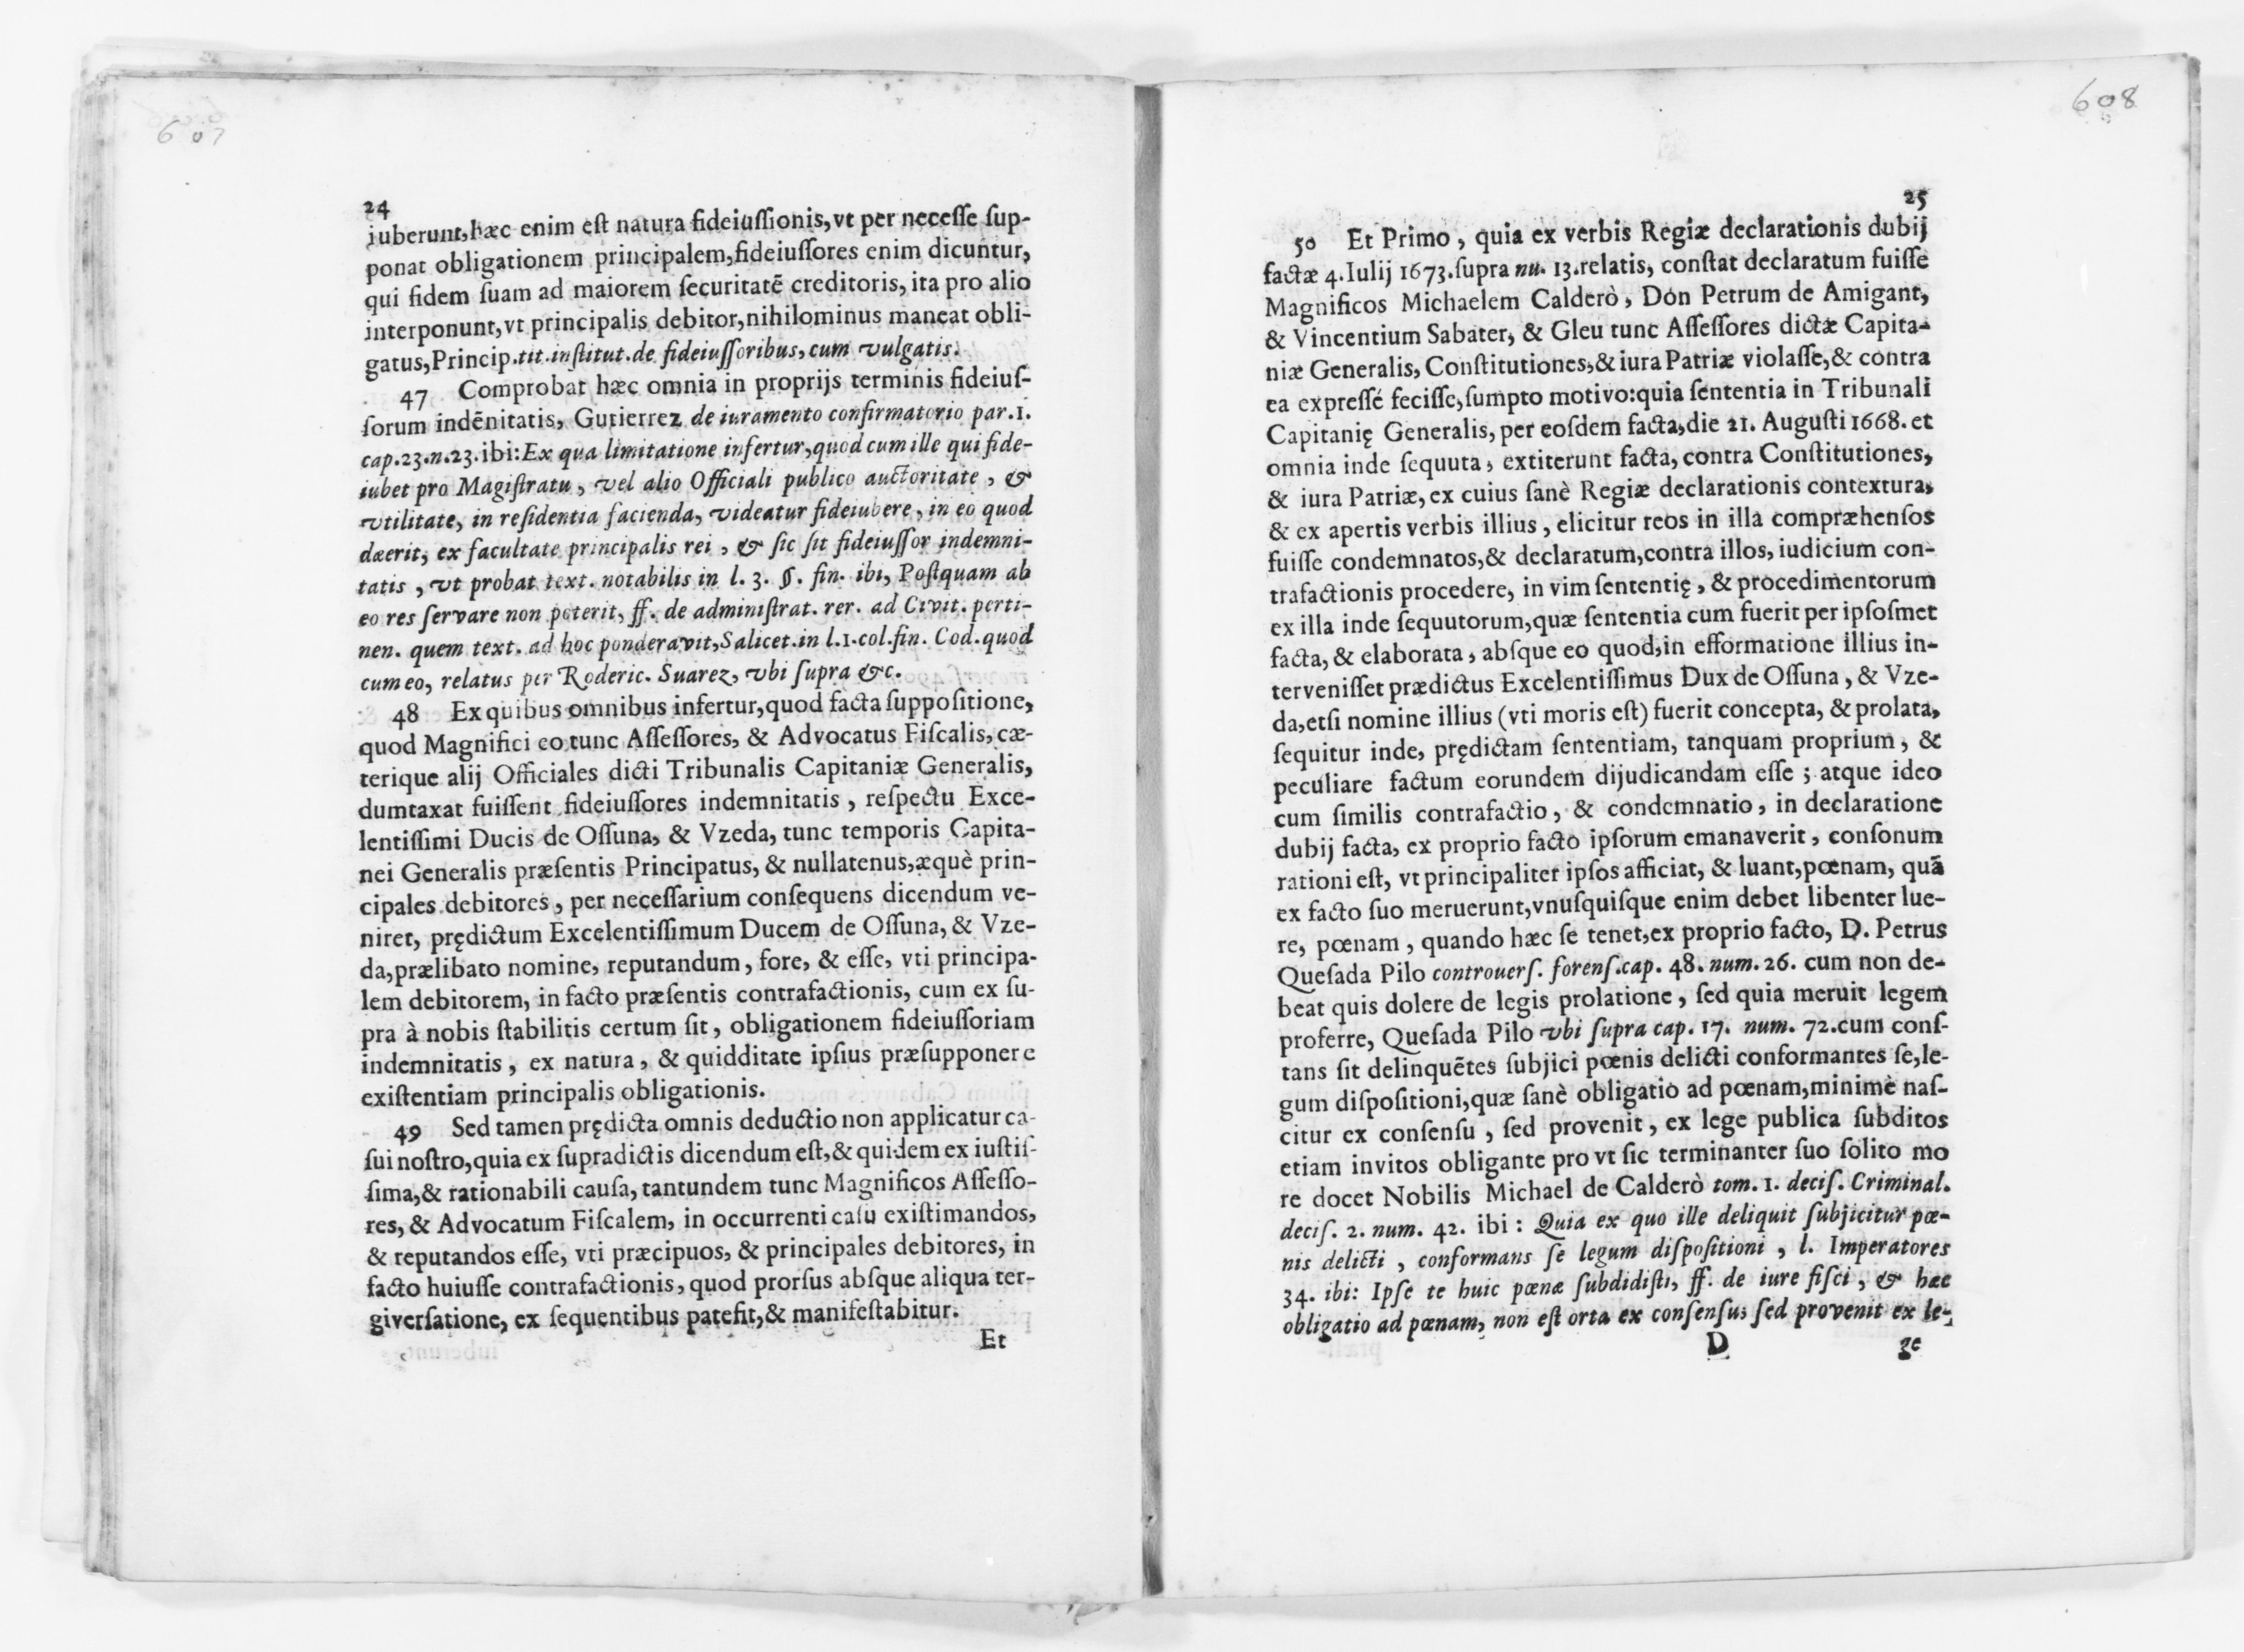 607
24
juberunt,hæc enim eſt natura fideiuſſionis,vt per neceſſe ſup-
ponat obligationem principalem,fideiuſſores enim dicuntur,
qui fidem ſuam ad maiorem ſecuritatē creditoris, ita pro alio
interponunt,vt principalis debitor,nihilominus maneat obli-
gatus,Princip.tit.inſtitut.de fideiuſſoribus,cum vulgatis.
47 Comprobat hæc omnia in proprijs terminis fideiuſ-
ſorum indēnitatis, Gutierrez de iuramento confirmatorio par.1.
cap.23.n.23.ibi:Ex qua limitatione infertur,quod cum ille qui fide-
iubet pro Magiſtratu, vel alio Officiali publico auctoritate, &
vtilitate, in reſidentia facienda, videatur fideiubere, in eo quod
dæerit, ex facultate principalis rei, & ſic ſit fideiuſſor indemni-
tatis, vt probat text. notabilis in l. 3. §. fin. ibi, Poſtquam ab
eo res ſervare non poterit, ff. de adminiſtrat. rer. ad Civit. perti-
nen. quem text. ad hoc ponderavit,Salicet.in l.1.col.fin. Cod.quod
cum eo, relatus per Roderic. Suarez, vbi ſupra &c.
48 Ex quibus omnibus infertur,quod facta ſuppoſitione,
quod Magnifici eo tunc Aſſeſſores, & Advocatus Fiſcalis, cæ-
terique alij Officiales dicti Tribunalis Capitaniæ Generalis,
dumtaxat fuiſſent fideiuſſores indemnitatis, reſpectu Exce-
lentiſſimi Ducis de Oſſuna, & Vzeda, tunc temporis Capita-
nei Generalis præſentis Principatus, & nullatenus,æquè prin-
cipales debitores, per neceſſarium conſequens dicendum ve-
niret, prędictum Excelentiſſimum Ducem de Oſſuna, & Vze-
da,prælibato nomine, reputandum, fore, & eſſe, vti principa-
lem debitorem, in facto præſentis contrafactionis, cum ex ſu-
pra à nobis ſtabilitis certum ſit, obligationem fideiuſſoriam
indemnitatis, ex natura, & quidditate ipſius præſupponere
exiſtentiam principalis obligationis.
49 Sed tamen prędicta omnis deductio non applicatur ca-
ſui noſtro,quia ex ſupradictis dicendum eſt,& quidem ex iuſtiſ-
ſima,& rationabili cauſa, tantundem tunc Magnificos Aſſeſſo-
res, & Advocatum Fiſcalem, in occurrenti caſu exiſtimandos,
& reputandos eſſe, vti præcipuos, & principales debitores, in
facto huiuſſe contrafactionis, quod prorſus abſque aliqua ter-
giverſatione, ex ſequentibus patefit,& manifeſtabitur.
Et
608
25
50 Et Primo, quia ex verbis Regiæ declarationis dubij
factæ 4.Iulij 1673.ſupra nu. 13.relatis, conſtat declaratum fuiſſe
Magnificos Michaelem Calderò, Don Petrum de Amigant,
& Vincentium Sabater, & Gleu tunc Aſſeſſores dictæ Capita-
niæ Generalis, Conſtitutiones,& iura Patriæ violaſſe,& contra
ea expreſſé feciſſe,ſumpto motivo:quia ſententia in Tribunali
Capitanię Generalis, per eoſdem facta,die 21. Auguſti 1668. et
omnia inde ſequuta, extiterunt facta, contra Conſtitutiones,
& iura Patriæ, ex cuius ſanè Regiæ declarationis contextura,
& ex apertis verbis illius, elicitur reos in illa compræhenſos
fuiſſe condemnatos,& declaratum,contra illos, iudicium con-
trafactionis procedere, in vim ſententię, & procedimentorum
ex illa inde ſequutorum,quæ ſententia cum fuerit per ipſoſmet
facta, & elaborata, abſque eo quod,in efformatione illius in-
terveniſſet prædictus Excelentiſſimus Dux de Oſſuna, & Vze-
da,etſi nomine illius (vti moris eſt) fuerit concepta, & prolata,
ſequitur inde, prędictam ſententiam, tanquam proprium, &
peculiare factum eorundem dijudicandam eſſe; atque ideo
cum ſimilis contrafactio, & condemnatio, in declaratione
dubij facta, ex proprio facto ipſorum emanaverit, conſonum
rationi eſt, vt principaliter ipſos afficiat, & luant,pœnam, quā
ex facto ſuo meruerunt,vnuſquiſque enim debet libenter lue-
re, pœnam, quando hæc ſe tenet,ex proprio facto, D. Petrus
Queſada Pilo controuerſ. forenſ.cap. 48. num. 26. cum non de-
beat quis dolere de legis prolatione, ſed quia meruit legem
proferre, Queſada Pilo vbi ſupra cap. 17. num. 72.cum conſ-
tans ſit delinquētes ſubjici pœnis delicti conformantes ſe,le-
gum diſpoſitioni,quæ ſanè obligatio ad pœnam,minimè naſ-
citur ex conſenſu, ſed provenit, ex lege publica ſubditos
etiam invitos obligante pro vt ſic terminanter ſuo ſolito mo
re docet Nobilis Michael de Calderò tom. 1. deciſ. Criminal.
deciſ. 2. num. 42. ibi: Quia ex quo ille deliquit ſubjicitur pœ-
nis delicti, conformans ſe legum diſpoſitioni, l. Imperatores
34. ibi: Ipſe te huic pœnæ ſubdidiſti, ff. de iure fiſci, & hæc
obligatio ad pœnam, non eſt orta ex conſenſu, ſed provenit ex le-
D ge